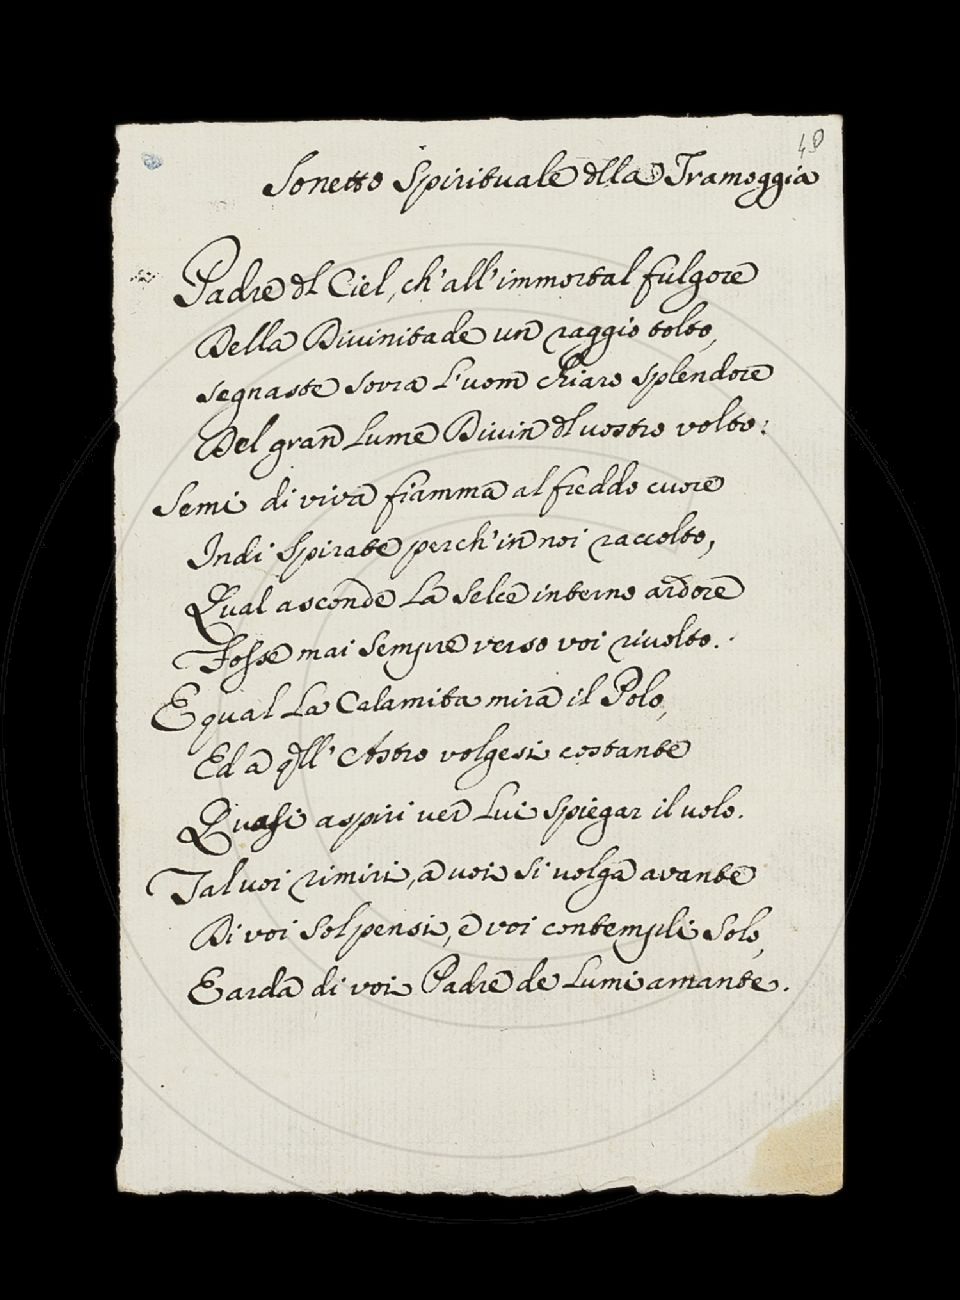 40
Sonetto Spirituale dlla Tramoggia
Padre dl Ciel, ch'all'immortal fulgore
Della Divinitade un raggio tolto,
segnaste sovra L'uom chiaro splendore
Del gran Lume Divin dl vostro volto:
Semi di viva fiamma al freddo cuore
Indi Spirate perch'in noi raccolto,
Qual asconde La Selce interno ardore
Fosse mai Sempre verso voi rivolto.
E qual La Calamita mira il Polo,
Ed a qll' Astro volgesi costante
Quasi aspiri ver Lui Spiegar il volo.
Tal voi rimiri, a voi si volga avante
Di voi Sol pensi, e voi contempli Solo,
E arda di voi Padre de Lumi amante.